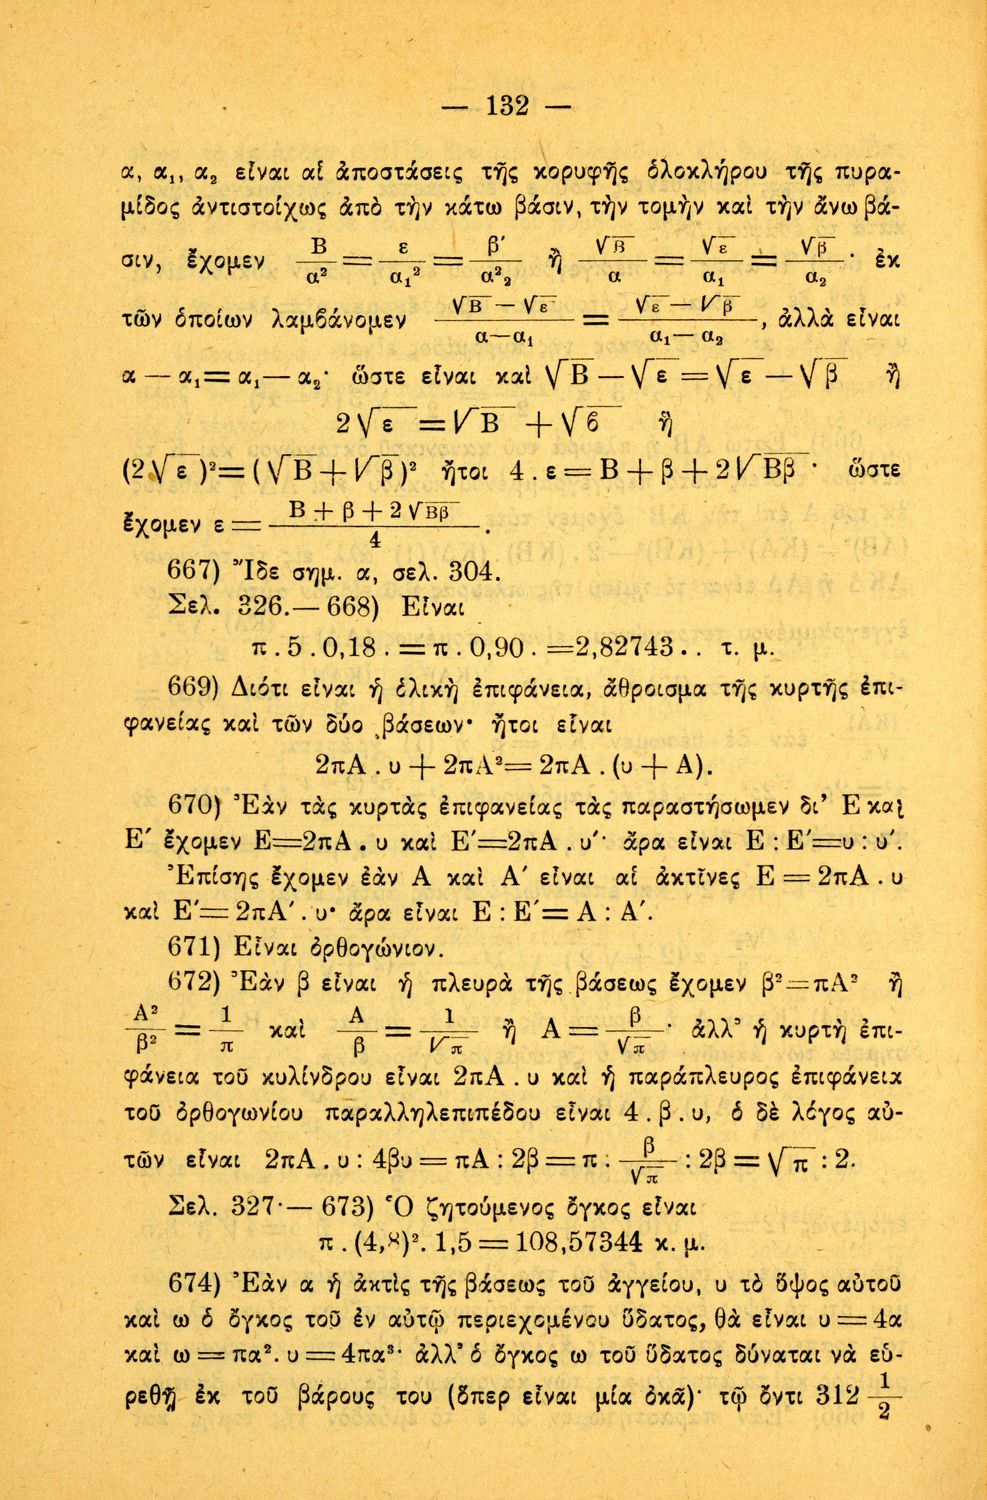 — 132 —
α, α₁, α₂ εἶναι αἱ ἀποστάσεις τῆς κορυφῆς ὁλοκλήρου τῆς πυρα-
μίδος ἀντιστοίχως ἀπὸ τὴν κάτω βάσιν, τὴν τομὴν καὶ τὴν ἄνω βά-
σιν, ἔχομεν Β/α² = ε/α₁² = β′/α²₂ ἢ √Β/α = √ε/α₁ = √β/α₂· ἐκ
τῶν ὁποίων λαμβάνομεν (√Β — √ε)/(α—α₁) = (√ε — √β)/(α₁— α₂), ἀλλὰ εἶναι
α — α₁= α₁— α₂· ὥστε εἶναι καὶ √Β — √ε = √ε — √β ἢ
2√ε = √Β + √ϐ ἢ
(2√ε)²= (√Β + √β)² ἤτοι 4 . ε = Β + β + 2√Ββ · ὥστε
ἔχομεν ε = (Β + β + 2√Ββ)/4 .
667) Ἴδε σημ. α, σελ. 304.
Σελ. 326.— 668) Εἶναι
π . 5 . 0,18 . = π . 0,90 . =2,82743 . . τ. μ.
669) Διότι εἶναι ἡ ὁλικὴ ἐπιφάνεια, ἄθροισμα τῆς κυρτῆς ἐπι-
φανείας καὶ τῶν δύο βάσεων· ἤτοι εἶναι
2πΑ . υ + 2πΑ²= 2πΑ . (υ + Α).
670) Ἐὰν τὰς κυρτὰς ἐπιφανείας τὰς παραστήσωμεν δι’ Ε καὶ
Ε′ ἔχομεν Ε=2πΑ . υ καὶ Ε′=2πΑ . υ′· ἄρα εἶναι Ε : Ε′=υ : υ′.
Ἐπίσης ἔχομεν ἐὰν Α καὶ Α′ εἶναι αἱ ἀκτῖνες Ε = 2πΑ . υ
καὶ Ε′= 2πΑ′. υ· ἄρα εἶναι Ε : Ε′= Α : Α′.
671) Εἶναι ὀρθογώνιον.
672) Ἐὰν β εἶναι ἡ πλευρὰ τῆς βάσεως ἔχομεν β²=πΑ² ἢ
Α²/β² = 1/π καὶ Α/β = 1/√π ἢ Α = β/√π· ἀλλ’ ἡ κυρτὴ ἐπι-
φάνεια τοῦ κυλίνδρου εἶναι 2πΑ . υ καὶ ἡ παράπλευρος ἐπιφάνεια
τοῦ ὀρθογωνίου παραλληλεπιπέδου εἶναι 4 . β . υ, ὁ δὲ λόγος αὐ-
τῶν εἶναι 2πΑ . υ : 4βυ = πΑ : 2β = π . β/√π : 2β = √π : 2.
Σελ. 327·— 673) Ὁ ζητούμενος ὄγκος εἶναι
π . (4,8)². 1,5 = 108,57344 κ. μ.
674) Ἐὰν α ἡ ἀκτὶς τῆς βάσεως τοῦ ἀγγείου, υ τὸ ὕψος αὐτοῦ
καὶ ω ὁ ὄγκος τοῦ ἐν αὐτῷ περιεχομένου ὕδατος, θὰ εἶναι υ = 4α
καὶ ω = πα². υ = 4πα³· ἀλλ’ ὁ ὄγκος ω τοῦ ὕδατος δύναται νὰ εὑ-
ρεθῇ ἐκ τοῦ βάρους του (ὅπερ εἶναι μία ὀκᾶ)· τῷ ὄντι 312 1/2